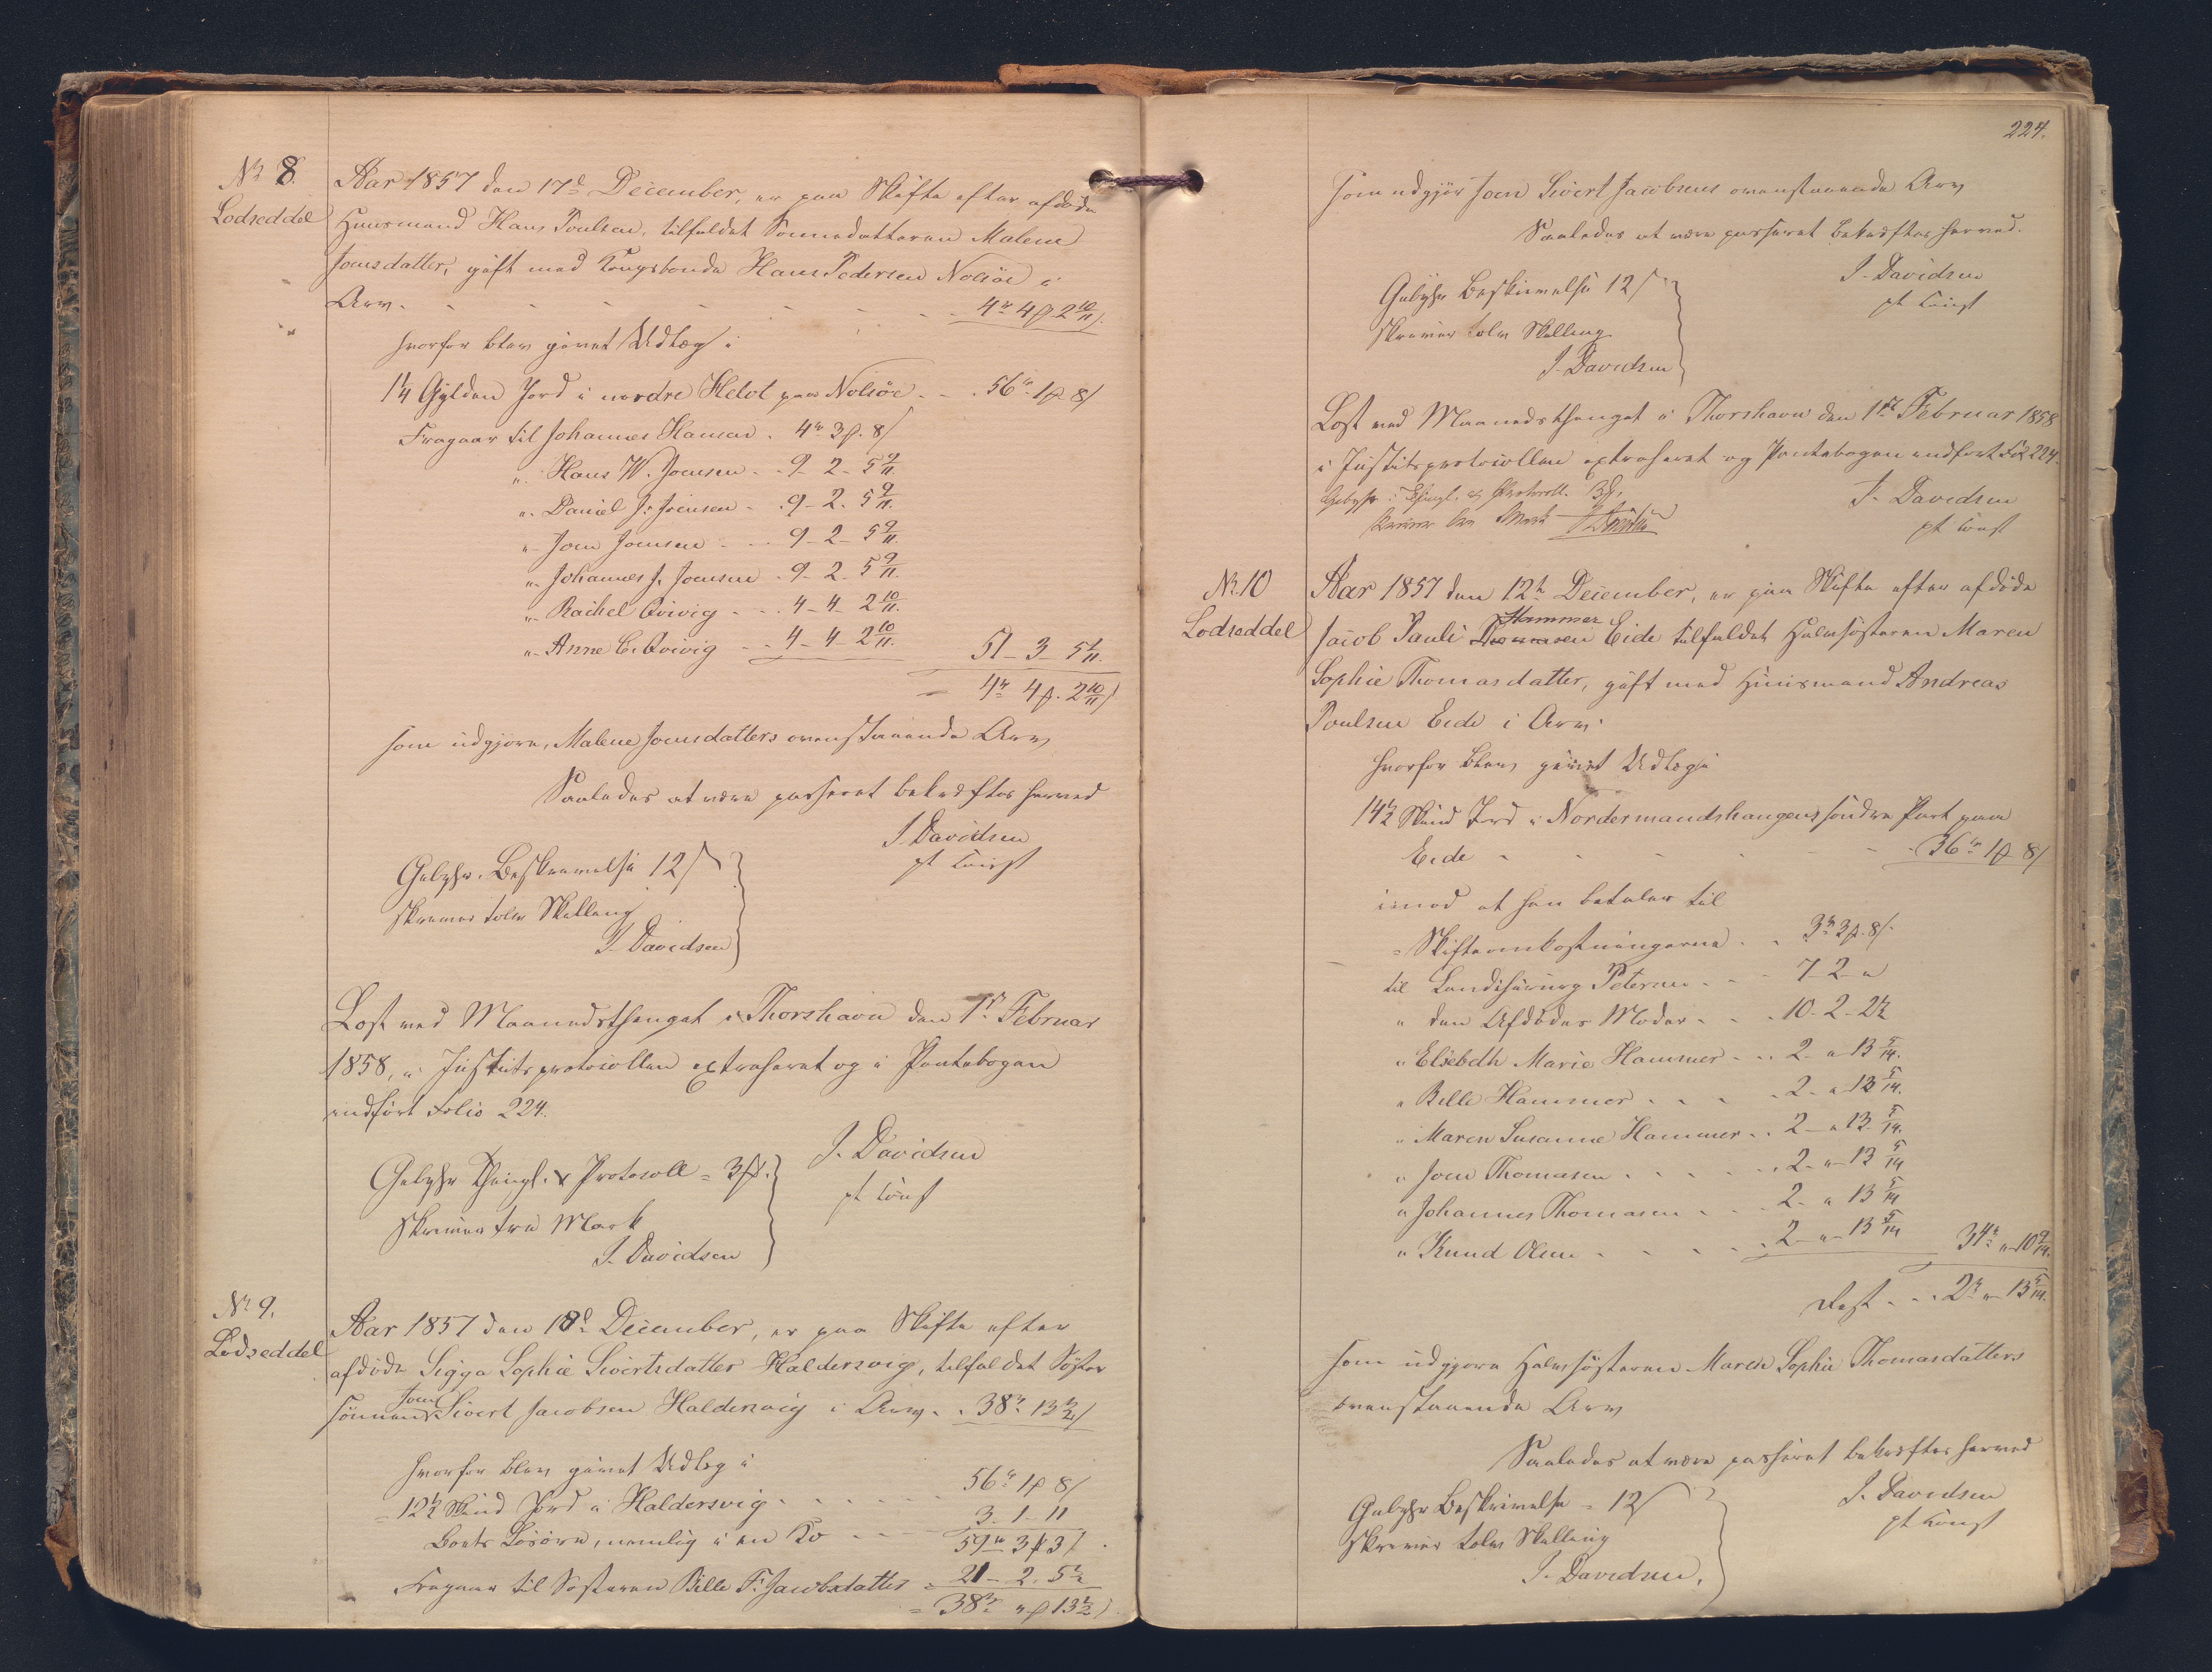 No 8.
Lodseddel
Aar 1857 den 17d December, er paa Skifte efter afdøde
Huusmand Hans Poulsen, tilfaldet Sønnedatteren Malene
Joensdatter, gift med Kongsbonde Hans Pedersen Nolsöe i
Arv - - - - - - - 4rd 4 ß 2 10/11 s.
hvorfor blev givet Udlæg i
1/4 Gylden Jord i nordre Helvt paa Nolsöe - - 56rd 1 ß 8 s
Fragaar til Johannes Hansen - 4rd 3 ß. 8 s
". Hans W. Joensen - - 9 - 2 - 5 9/11.
". Daniel J: Joensen - - 9 - 2 - 5 9/11.
". Joen Joensen - - - 9 - 2 - 5 9/11.
". Johannes J. Joensen - 9 - 2 - 5 9/11.
". Rachel Qvivig - - - 4 - 4 - 2 10/11.
". Anne C. Qvivig - - 4 - 4 - 2 10/11. 51 - 3 - 5 1/11.
= 4rd 4 ß. 2 10/11 s
som udgjøre, Malene Joensdatters ovenstaaende Arv
Saaledes at være passeret bekræftes herved
J. Davidsen
pt const
Gebyhr. Beskrivelse 12 s
skriver tolv Skilling
J. Davidsen
Læst ved Maanedsthinget i Thorshavn den 1st Februar
1858, i Justitsprotocollen extraheret og i Pantebogen
indført Folio 224.
J. Davidsen
pt const
Gebyhr Thingl. & Protocoll = 3 ß.
skriver tre Mark
J. Davidsen
No 9.
Lodseddel
Aar 1857 den 18d December, er paa Skifte efter
afdøde Sigga Sophie Sivertsdatter Haldersvig, tilfaldet Søster
sønnen Joen Sivert Jacobsen Haldersvig i Arv - - 38rd " 13 1/2 s
hvorfor blev givet Udlæg i
= 12 1/2 Skind Jord i Haldersvig - - - - - 56rd 1 ß 8 s
Boets Løsøre, nemlig i en Ko - - - 3. 1 - 11
59rd 3 ß 3 s
Fragaar til Søsteren Bille F. Jacobsdatter = 21 - 2. 5 1/2
= 38rd " ß 13 1/2 s
224.
som udgjør Joen Sivert Jacobsens ovenstaaende Arv
Saaledes at være passeret bekræftes herved.
J. Davidsen
pt const
Gebyhr Beskrivelse 12 s
skriver tolv Skilling
J. Davidsen
Læst ved Maanedsthinget i Thorshavn den 1st Februar 1858
i Justitsprotocollen extraheret og Pantebogen indført Fol 224.
Gebyhr: Thingl. og Protocoll. 3 ß.
skriver tre Mark J. Davidsen
J. Davidsen
pt const
No 10
Lodseddel
Aar 1857 den 12te December, er paa Skifte efter afdøde
Jacob Pauli Thomasen Hammer Eide tilfaldet Halvsøsteren Maren
Sophie Thomasdatter, gift med Huusmand Andreas
Poulsen Eide i Arv.
hvorfor blev givet Udlæg i
14 1/2 Skind Jord i Nordermandshaugens søndre Part paa
Eide - - - - - - 36rd 1 ß 8 s
imod at hun betaler til
= Skifteomkostningerne - - 3rd 3 ß. 8 s.
til Landchirurg Petersen - - - 7 - 2 - "
" den Afdødes Moder - - - 10 - 2 - 2 1/2
" Elsebeth Marie Hammer - - - 2 - " 13 5/14.
" Bille Hammer - - - - 2 - " 13 5/14.
" Maren Susanne Hammer - - 2 - " 13 5/14.
" Joen Thomasen - - - - - 2 - " - 13 5/14
" Johannes Thomasen - - - 2 - " 13 5/14
" Knud Olsen - - - - - 2 - " - 13 5/14 34rd " 10 9/14.
Rest - - - 2rd " 13 5/14.
som udgjøre Halvsøsteren Maren Sophie Thomasdatters
ovenstaaende Arv
Saaledes at være passeret bekræftes herved
J. Davidsen
pt const
Gebyhr Beskrivelse = 12 s
skriver tolv Skilling
J. Davidsen.